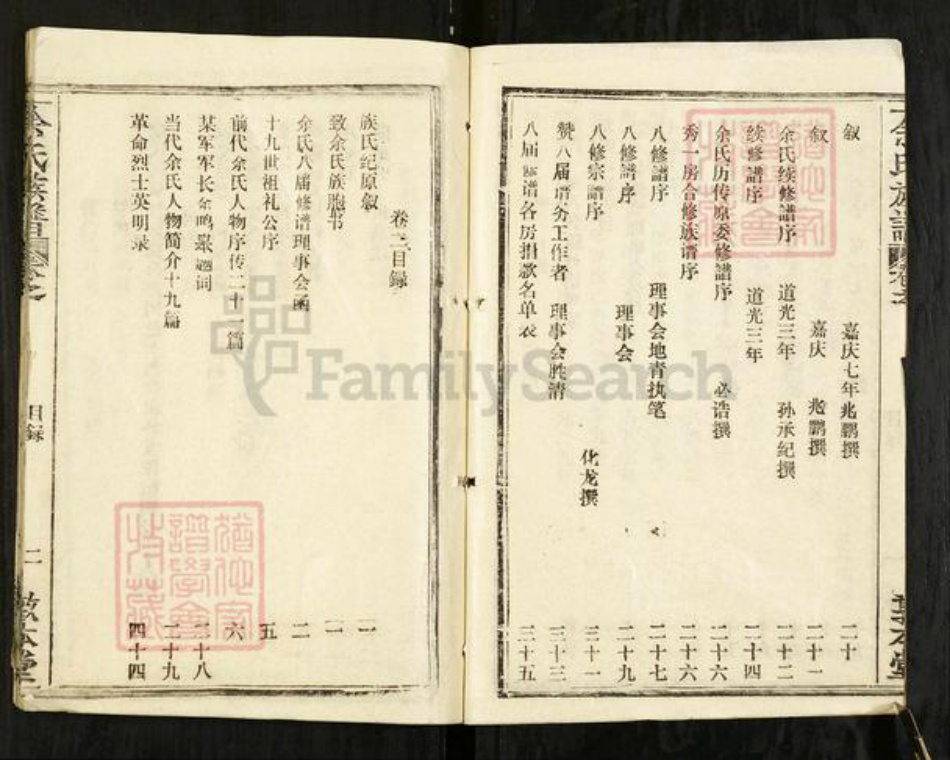 叙 嘉庆七年兆鹏撰 二十
叙 嘉庆 兆鹏撰 二十一
余氏续修谱序 道光三年 孙承纪撰 二十二
续修谱序 道光三年 二十四
余氏历传原委修谱序 必诰撰 二十六
秀一房合修族谱序 二十六
八修谱序 理事会地青执笔 二十七
八修谱序 理事会 二十九
八修宗谱序 化龙撰 三十一
赞八届谱务工作者 理事会胜清 三十三
八届修谱各房捐款名单表 三十五
余氏族谱
卷三目录
族氏纪原叙 一
致余氏族胞书 一
余氏八届修谱理事会函 二
十九世祖礼公序 五
前代余氏人物序传二十一篇 六
某军军长余鸣聚题词 二十八
当代余氏人物简介十九篇 二十九
革命烈士英明录 四十四
目录
二
敦本堂
FamilySearch